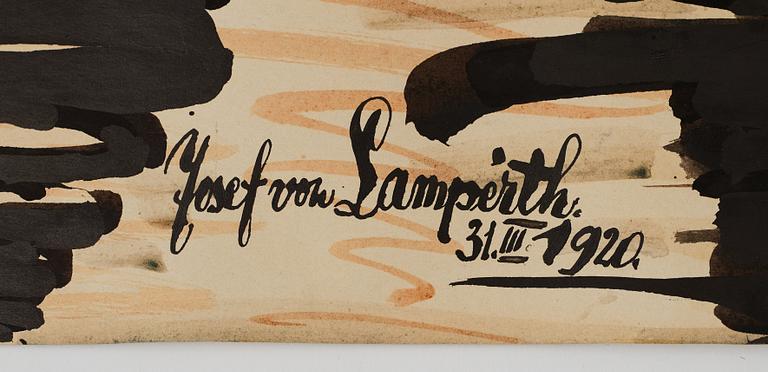 Josef von Lampérth.
31.III. 1920.